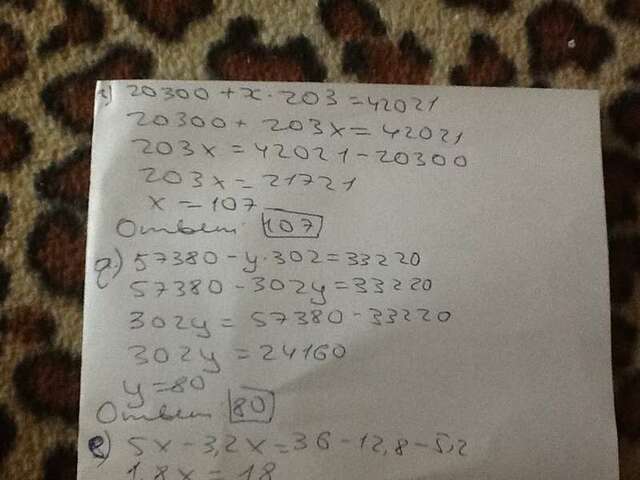 г) 20300 + x · 203 = 42021
20300 + 203x = 42021
203x = 42021 - 20300
203x = 21721
x = 107
Ответ: 107
д) 57380 - y · 302 = 33220
57380 - 302y = 33220
302y = 57380 - 33220
302y = 24160
y = 80
Ответ: 80
е) 5x - 3,2x = 36 - 12,8 - 5,2
1,8x = 18